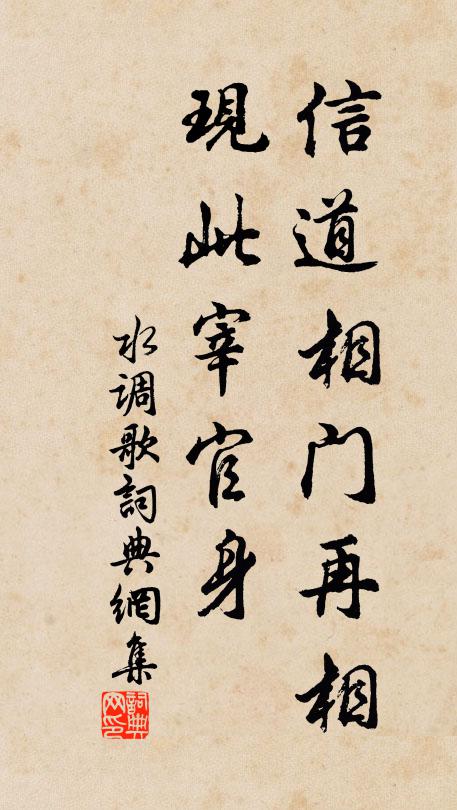 信道相门再相
现此宰官身
水调歌詞典網集
詞典网印